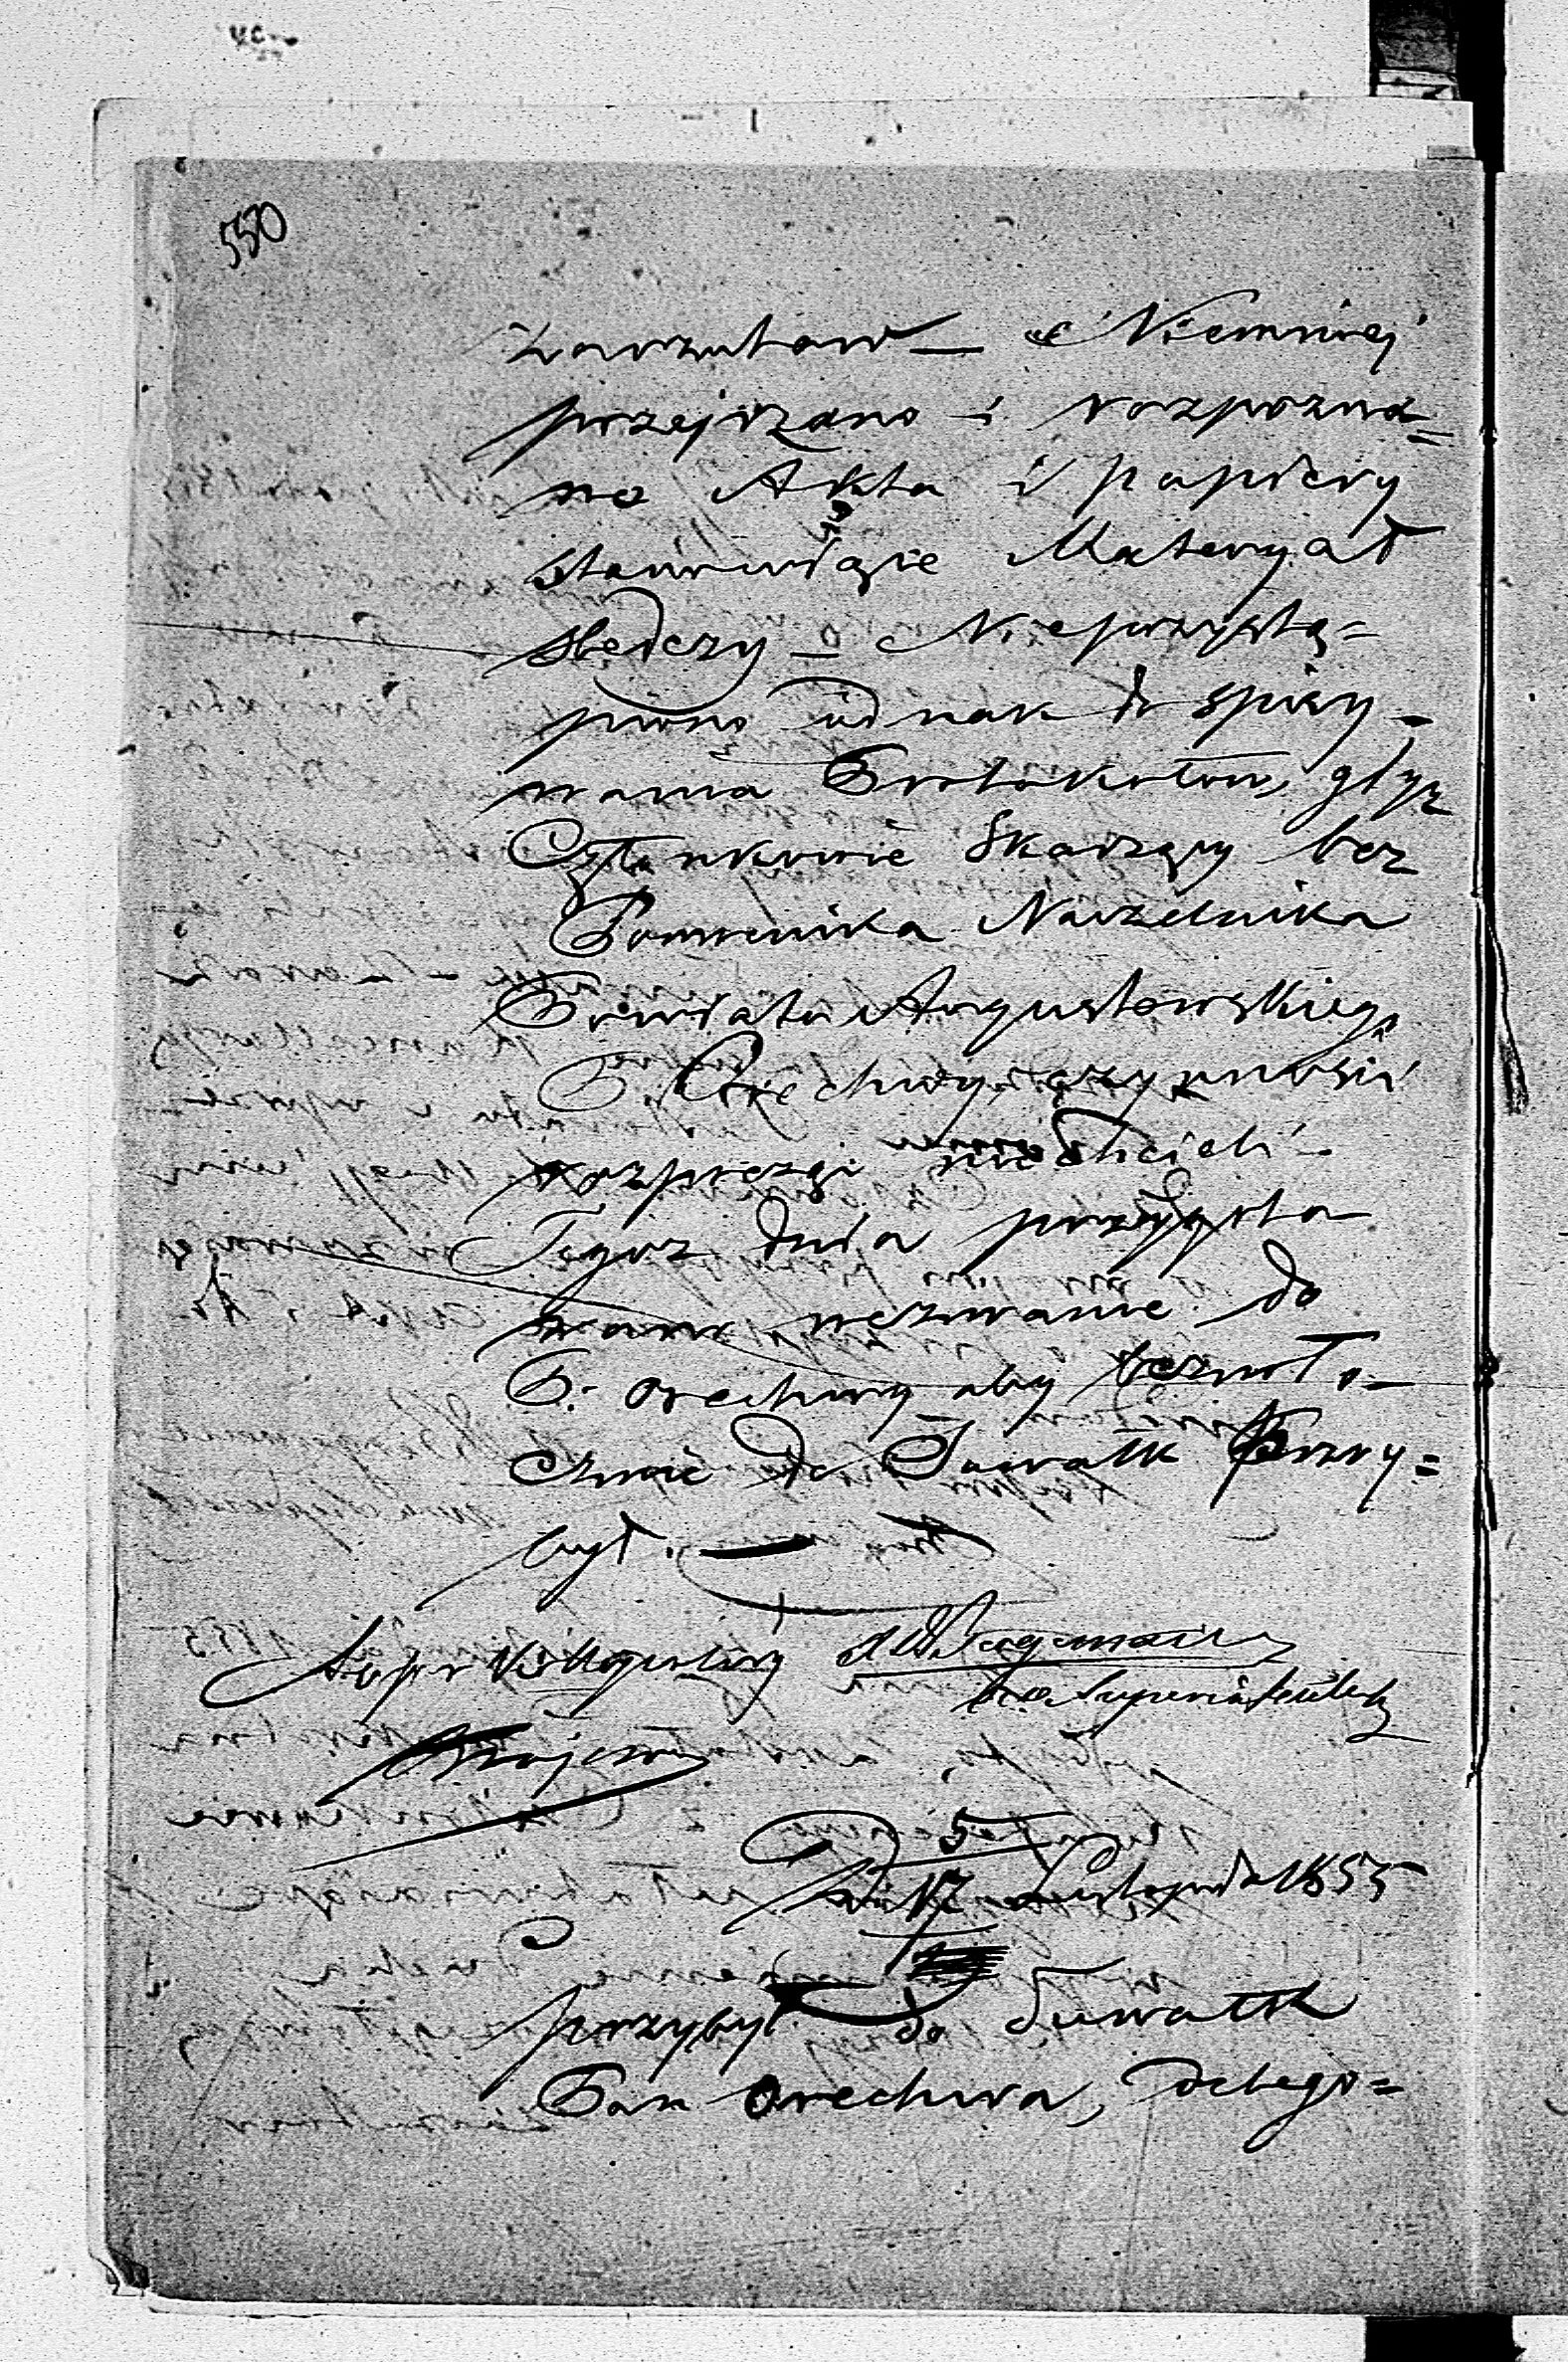 550
zarzutow — Niemniej
przejrzano i rozpozna=
no Akta i papiery
stanowiące Materyał
śledczy — Nieprzystą=
piono jednak do spisy-
wania Protokołow, gdyż
Członkowie Skarżący bez
Pomocnika Naczelnika
Powiatu Augustowskiego
P. Orechwy czynności
rozpocząć nie chcieli —
Tegoż dnia przesła
wezwanie do
P. Orechwy aby bezzwło-
cznie do Suwałk Przy=
był. —
Superintendent
5
dnia 17 Listopada 1853
przybył do Suwałk
Pan Orechwa, Delego=